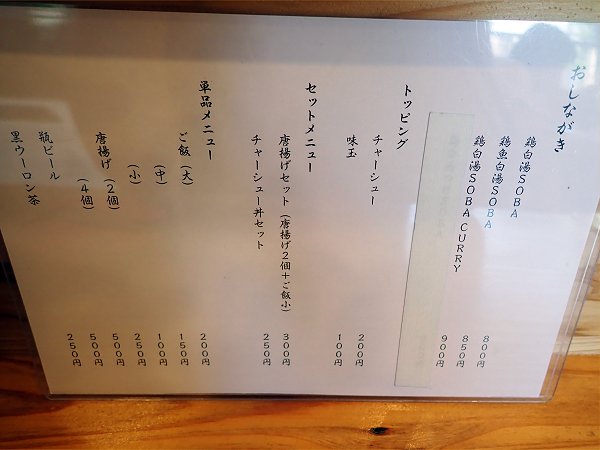 おしながき
鶏白湯SOBA 800円
鶏魚白湯SOBA 850円
鶏白湯SOBA CURRY 900円
トッピング
チャーシュー 200円
味玉 100円
セットメニュー
唐揚げセット（唐揚げ2個＋ご飯小） 300円
チャーシュー丼セット 250円
単品メニュー
ご飯（大） 200円
（中） 150円
（小） 100円
唐揚げ（2個） 250円
（4個） 500円
瓶ビール 500円
黒ウーロン茶 250円